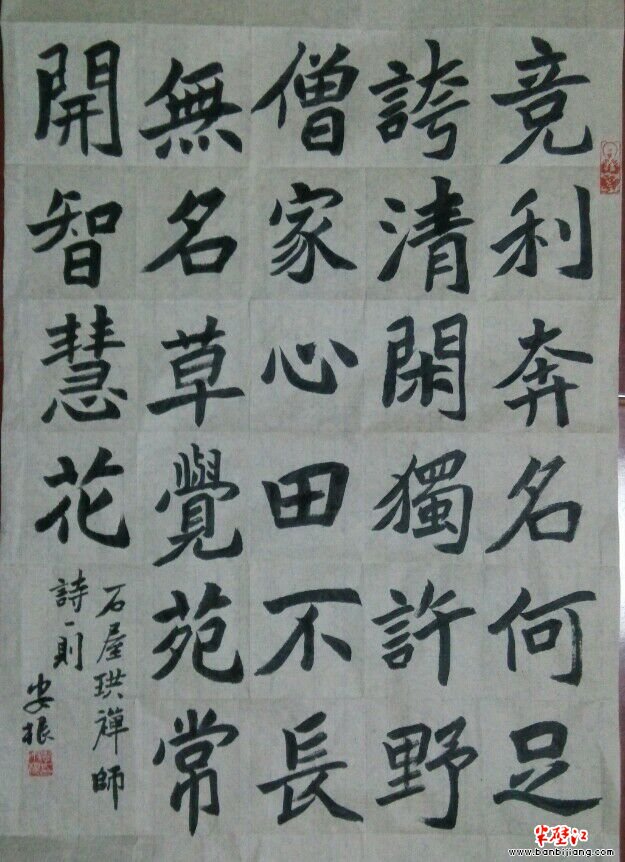 竞利奔名何足
誇清閑獨許野
僧家心田不長
無名草覺苑常
開智慧花
石屋珙禅師
詩一則
安根
半壁江
www.banbijiang.com